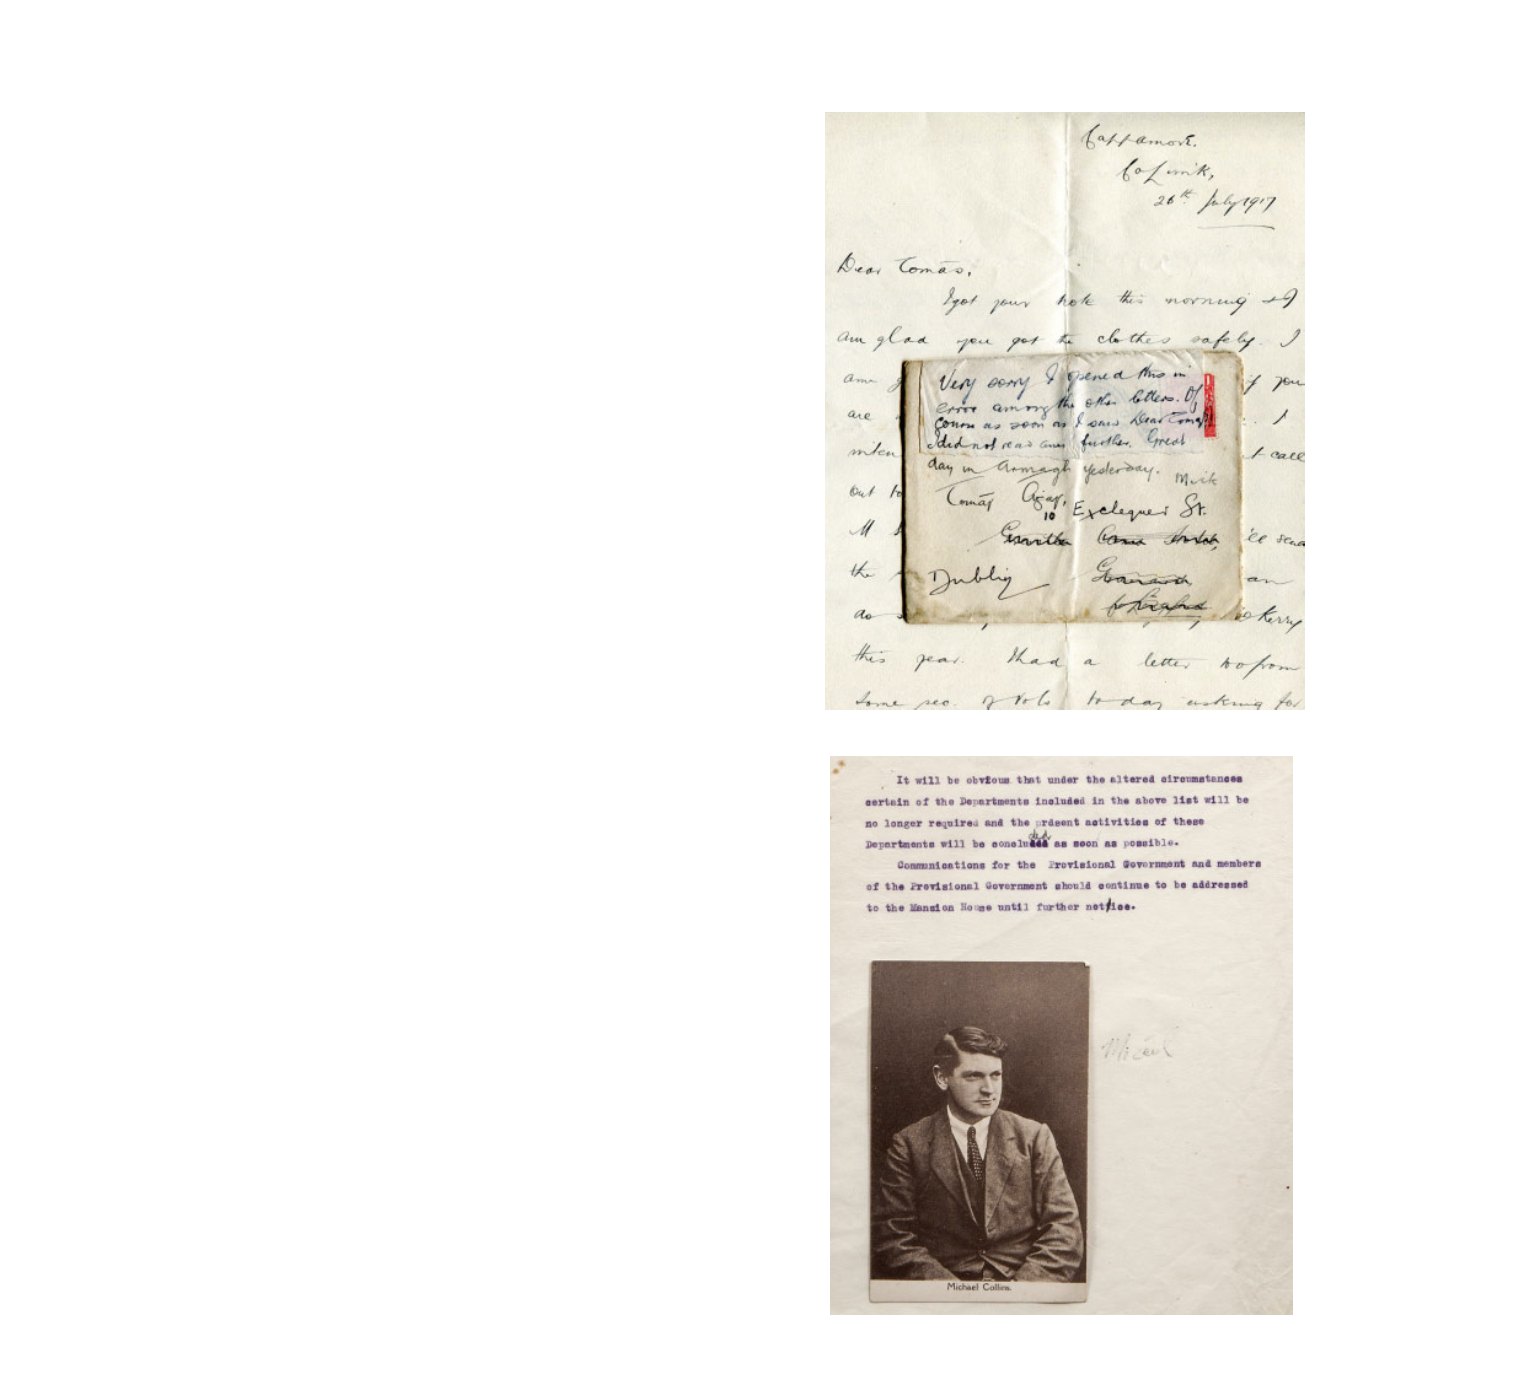 Cappamore.
Co Limk,
26th July 1917
Dear Tomás,
I got your note this morning & I
am glad you got the clothes safely. I
am
if you
are
I
call
out to
the
an
as
Kerry
this year. I had a letter too from
some sec. of Vols to day asking for
Very sorry I opened this in
error among the other letters. Of
course as soon as I saw Dear Tomás
I did not read any further. Great
day in Armagh yesterday. Mick
Tomás
10 Exchequer St.
Dublin
It will be obvious that under the altered circumstances
certain of the Departments included in the above list will be
no longer required and the present activities of these
Departments will be concluded as soon as possible.
Communications for the Provisional Government and members
of the Provisional Government should continue to be addressed
to the Mansion House until further notice.
Micéul
Michael Collins.